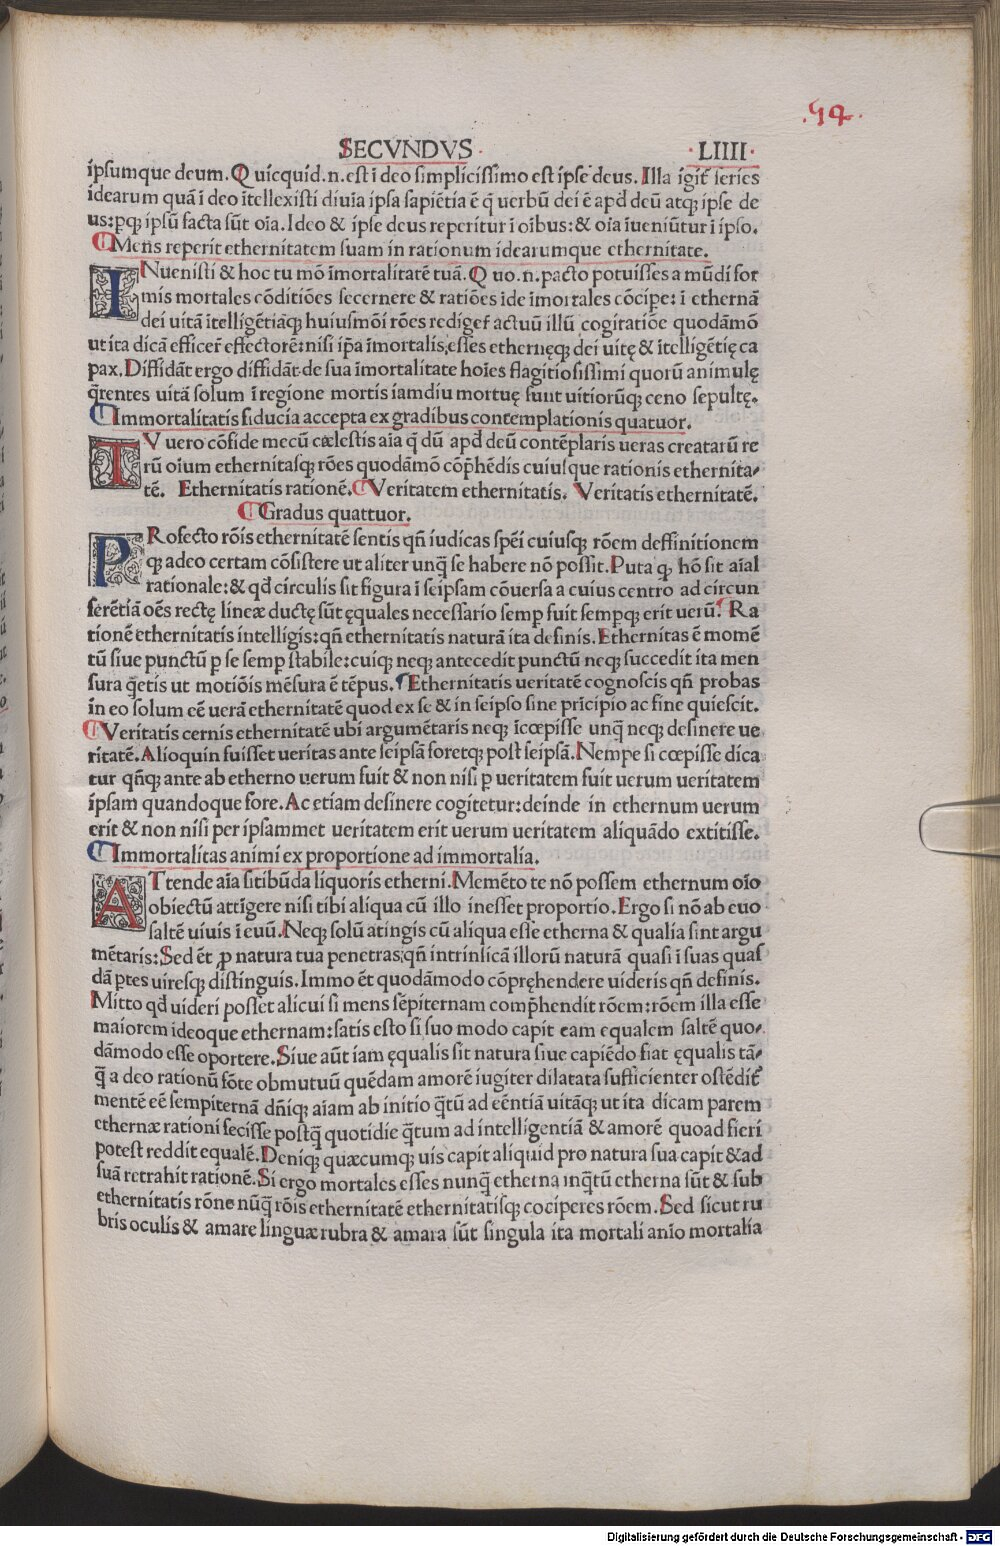 .54.
SECVNDVS · · LIIII ·
ipsumque deum. Q uicquid.n.est ĩ deo simplicissimo est ipse deus. Illa igit̃ series
idearum quã ĩ deo ĩtellexisti diuĩa ipsa sapiẽtia ẽ q̃ uerbũ dei ẽ apđ deũ atq; ipse de
us:ꝑq; ipsũ facta sũt oĩa. Ideo & ipse deus reperitur ĩ oĩbus:& oĩa ĩueniũtur ĩ ipso.
Mens reperit ethernitatem suam in rationum idearumque ethernitate.
INuenisti & hoc tu mõ ĩmortalitatẽ tuã. Q uo.n.pacto potuisses a mũdi for
mis mortales cõditiões secernere & ratiões ĩde ĩmortales cõcipe: ĩ ethernã
dei uitã ĩtelligẽtiãq; huiusmõi rões rediger̃ actuũ illũ cogitatiõe quodãmõ
ut ita dicã efficer̃ effectorẽ: nisi ip̃a ĩmortalis, esses ethernęq; dei uitę & ĩtelligẽtię ca
pax. Diffidãt ergo diffidãt de sua ĩmortalitate hoĩes flagitiosissimi quorũ animulę
q̃rentes uitã solum ĩ regione mortis iamdiu mortuę sunt uitiorũq; ceno sepultę.
Immortalitatis fiducia accepta ex gradibus contemplationis quatuor.
TV uero cõfide mecũ cælestis aĩa q̃ dũ apđ deũ contẽplaris ueras creatarũ re
rũ oĩum ethernitasq; rões quodãmõ cõp̃hẽdis cuiusque rationis ethernita-
tẽ. Ethernitatis rationẽ. Veritatem ethernitatis. Veritatis ethernitatẽ.
Gradus quattuor.
PRofecto rõis ethernitatẽ sentis qñ iudicas spẽi cuiusq; rõem deffinitionem
q; adeo certam cõsistere ut aliter unq̃ se habere nõ possit. Puta ꝙ hõ sit aĩal
rationale:& qđ circulis sit figura ĩ seipsam cõuersa a cuius centro ad circun
ferẽtiã oẽs rectę lineæ ductę sũt ęquales necessario semꝑ fuit semꝑq; erit uerũ. Ra
tionẽ ethernitatis intelligis: qñ ethernitatis naturã ita definis. Ethernitas ẽ momẽ
tũ siue punctũ ꝑ se semꝑ stabile: cuiq; neq; antecedit punctũ neq; succedit ita men
sura q̃etis ut motiõis mẽsura ẽ tẽpus. Ethernitatis ueritatẽ cognoscis qñ probas
in eo solum eẽ uerã ethernitatẽ quod ex se & in seipso sine prĩcipio ac fine quiescit.
Veritatis cernis ethernitatẽ ubi argumẽtaris neq; ĩcœpisse unq̃ neq; desinere ue
ritatẽ. Alioquin fuisset ueritas ante seipsã foretq; post seipsã. Nempe si cœpisse dica
tur qñq; ante ab etherno uerum fuit & non nisi ꝑ ueritatem fuit uerum ueritatem
ipsam quandoque fore. Ac etiam desinere cogitetur: deinde in ethernum uerum
erit & non nisi per ipsammet ueritatem erit uerum ueritatem aliquãdo extitisse.
Immortalitas animi ex proportione ad immortalia.
ATtende aĩa sitibũda liquoris etherni. Memẽto te nõ possem ethernum oĩo
obiectũ attĩgere nisi tibi aliqua cũ illo inesset proportio. Ergo si nõ ab euo
saltẽ uiuis ĩ euũ. Neq; solũ atingis cũ aliqua esse etherna & qualia sint argu
mẽtaris: Sed ẽt ꝓ natura tua penetras, qñ intrinsicã illorũ naturã quasi ĩ suas quas
dã ꝑtes uiresq; distinguis. Immo ẽt quodãmodo cõpręhendere uideris qñ definis.
Mitto qđ uideri posset alicui si mens sẽpiternam comp̃hendit rõem: rõem illa esse
maiorem ideoque ethernam: satis esto si suo modo capit eam equalem saltẽ quo-
dãmodo esse oportere. Siue aũt iam ęqualis sit natura siue capiẽdo fiat ęqualis tã-
q̃ a deo rationũ fõte obmutuũ quẽdam amorẽ iugiter dilatata sufficienter ostẽdit̃
mentẽ eẽ sempiternã dñiq; aĩam ab initio q̃tũ ad eẽntiã uitãq; ut ita dicam parem
ethernæ rationi fecisse postq̃ quotidie q̃tum ad intelligentiã & amorẽ quoad fieri
potest reddit equalẽ. Deniq; quæcumq; uis capit aliquid pro natura sua capit & ad
suã retrahit rationẽ. Si ergo mortales esses nunq̃ etherna inq̃tũ etherna sũt & sub
ethernitatis rõne nũq̃ rõis ethernitatẽ ethernitatisq; cociperes rõem. Sed sicut ru
bris oculis & amare linguæ rubra & amara sũt singula ita mortali anĩo mortalia
Digitalisierung gefördert durch die Deutsche Forschungsgemeinschaft - DFG